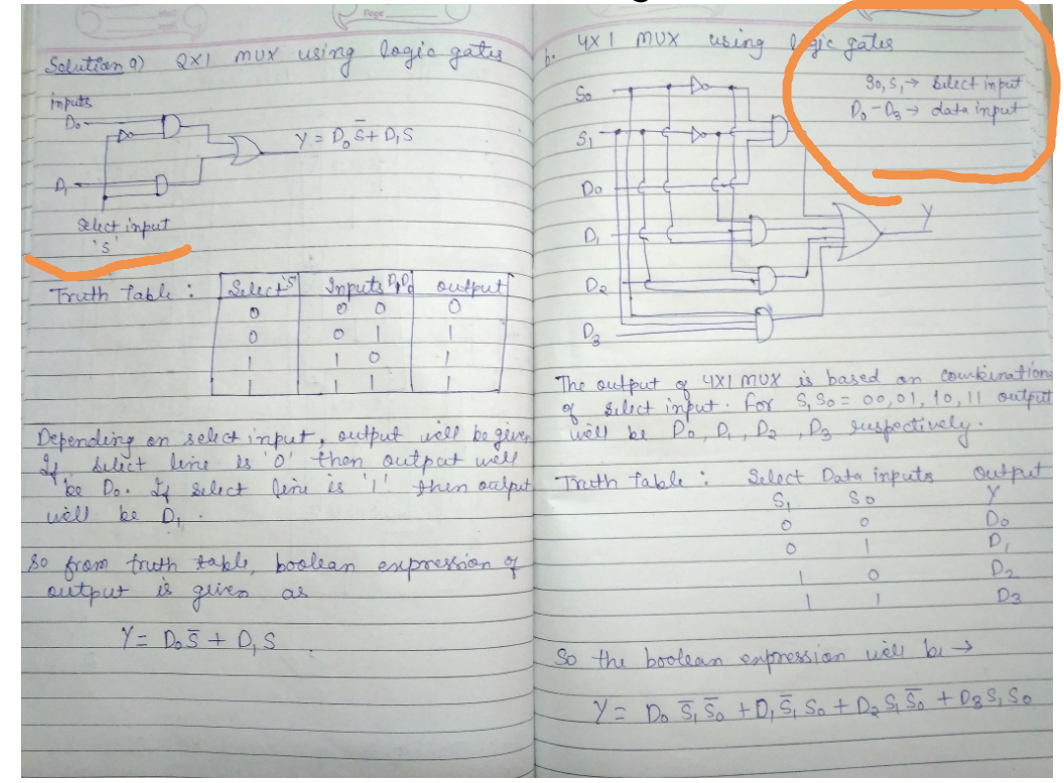 Page
Solution a) 2X1 MUX using logic gates
inputs
D0
Y = D0 S̅ + D1 S
D1
Select input
'S'
Truth Table :
Select 'S' Inputs D1 D0 output
0 0 0 0
0 0 1 1
1 1 0 1
1 1 1 1
Depending on select input, output will be given
If select line is '0' then output will
be D0. If select line is '1' then output
will be D1.
So from truth table, boolean expression of
output is given as
Y = D0 S̅ + D1 S
b. 4X1 MUX using logic gates
S0, S1 → Select input
D0 - D3 → data input
S0
S1
D0
D1
D2
D3
Y
The output of 4X1 MUX is based on combinations
of select input. For S1 S0 = 00, 01, 10, 11 output
will be D0, D1, D2, D3 respectively.
Truth Table : Select Data inputs Output
S1 S0 Y
0 0 D0
0 1 D1
1 0 D2
1 1 D3
So the boolean expression will be →
Y = D0 S̅1 S̅0 + D1 S̅1 S0 + D2 S1 S̅0 + D3 S1 S0